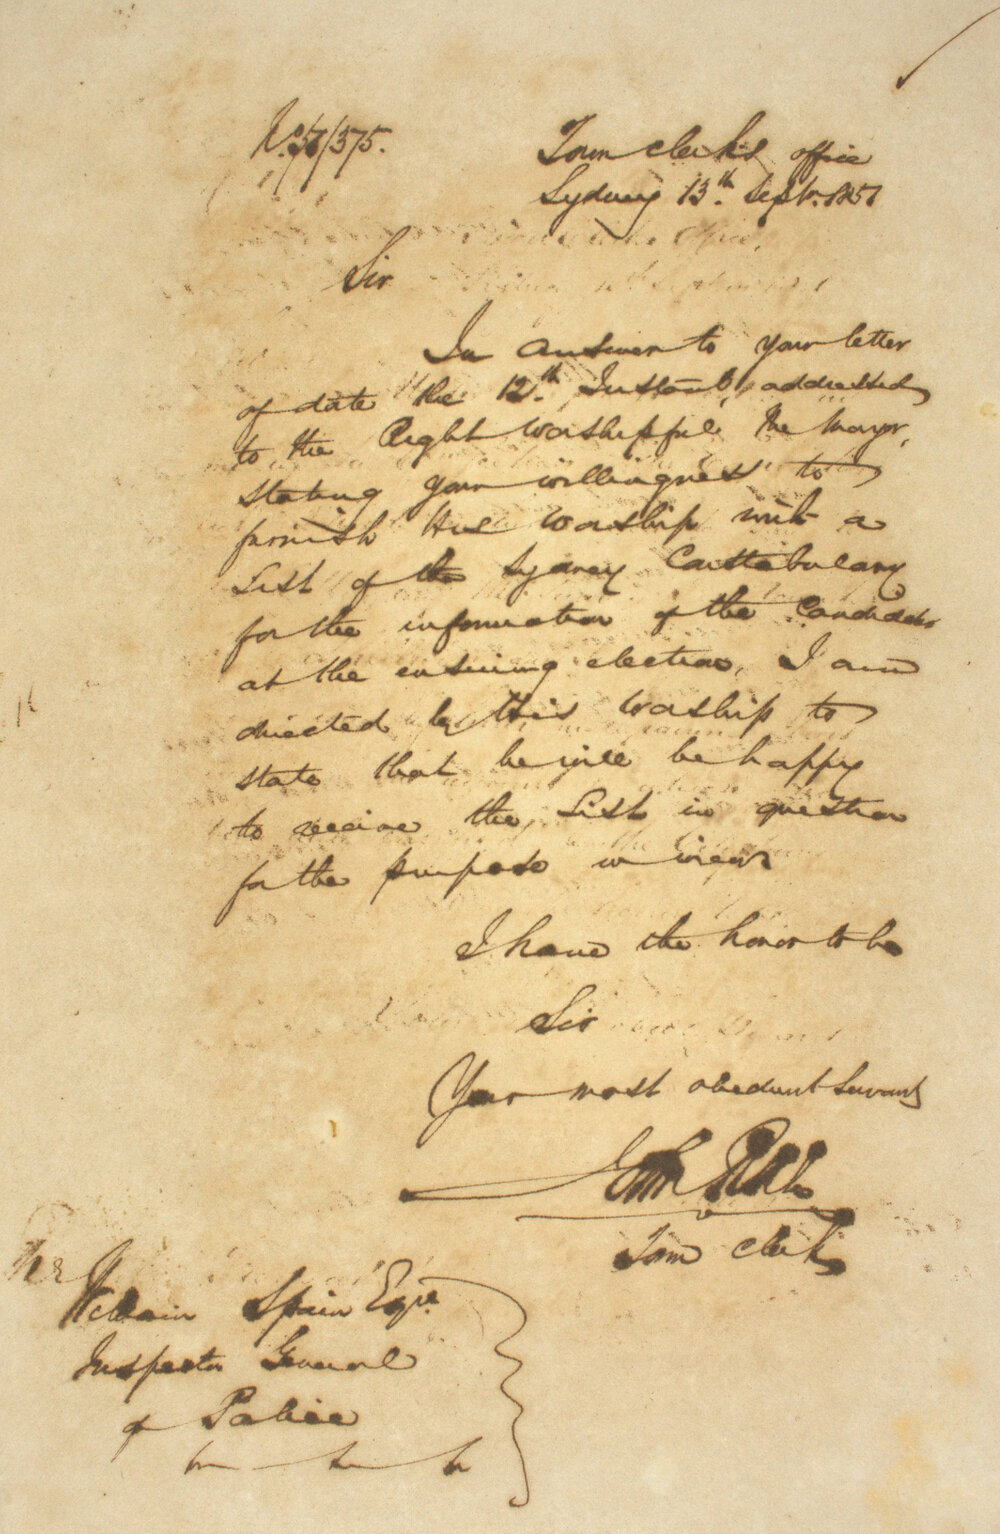 No. 51/375.
Town Clerk's office
Sydney 13th. Septr. 1851
Sir
In answer to your letter
of date the 12th. Instant, addressed
to the Right Worshipful the Mayor,
stating your willingness to
furnish His Worship with a
List of the Sydney Constabulary
for the information of the Candidates
at the ensuing election, I am
directed by His Worship to
state that he will be happy
to receive the List in question
for the purpose in view
I have the honor to be
Sir
Your most obedient Servant
John
Town Clerk
William Spain Esqre.
Inspector General
of Police